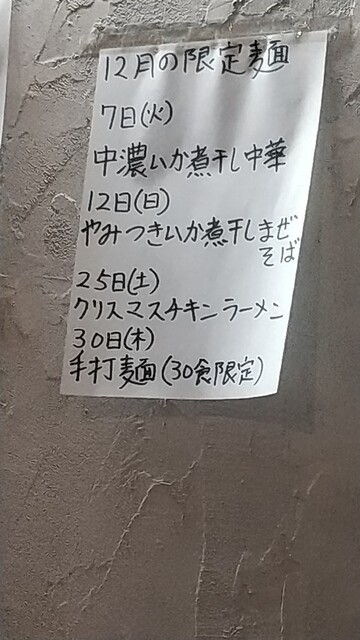 12月の限定麺
7日(火)
中濃いか煮干し中華
12日(日)
やみつきいか煮干しまぜ
そば
25日(土)
クリスマスチキンラーメン
30日(木)
手打麺(30食限定)